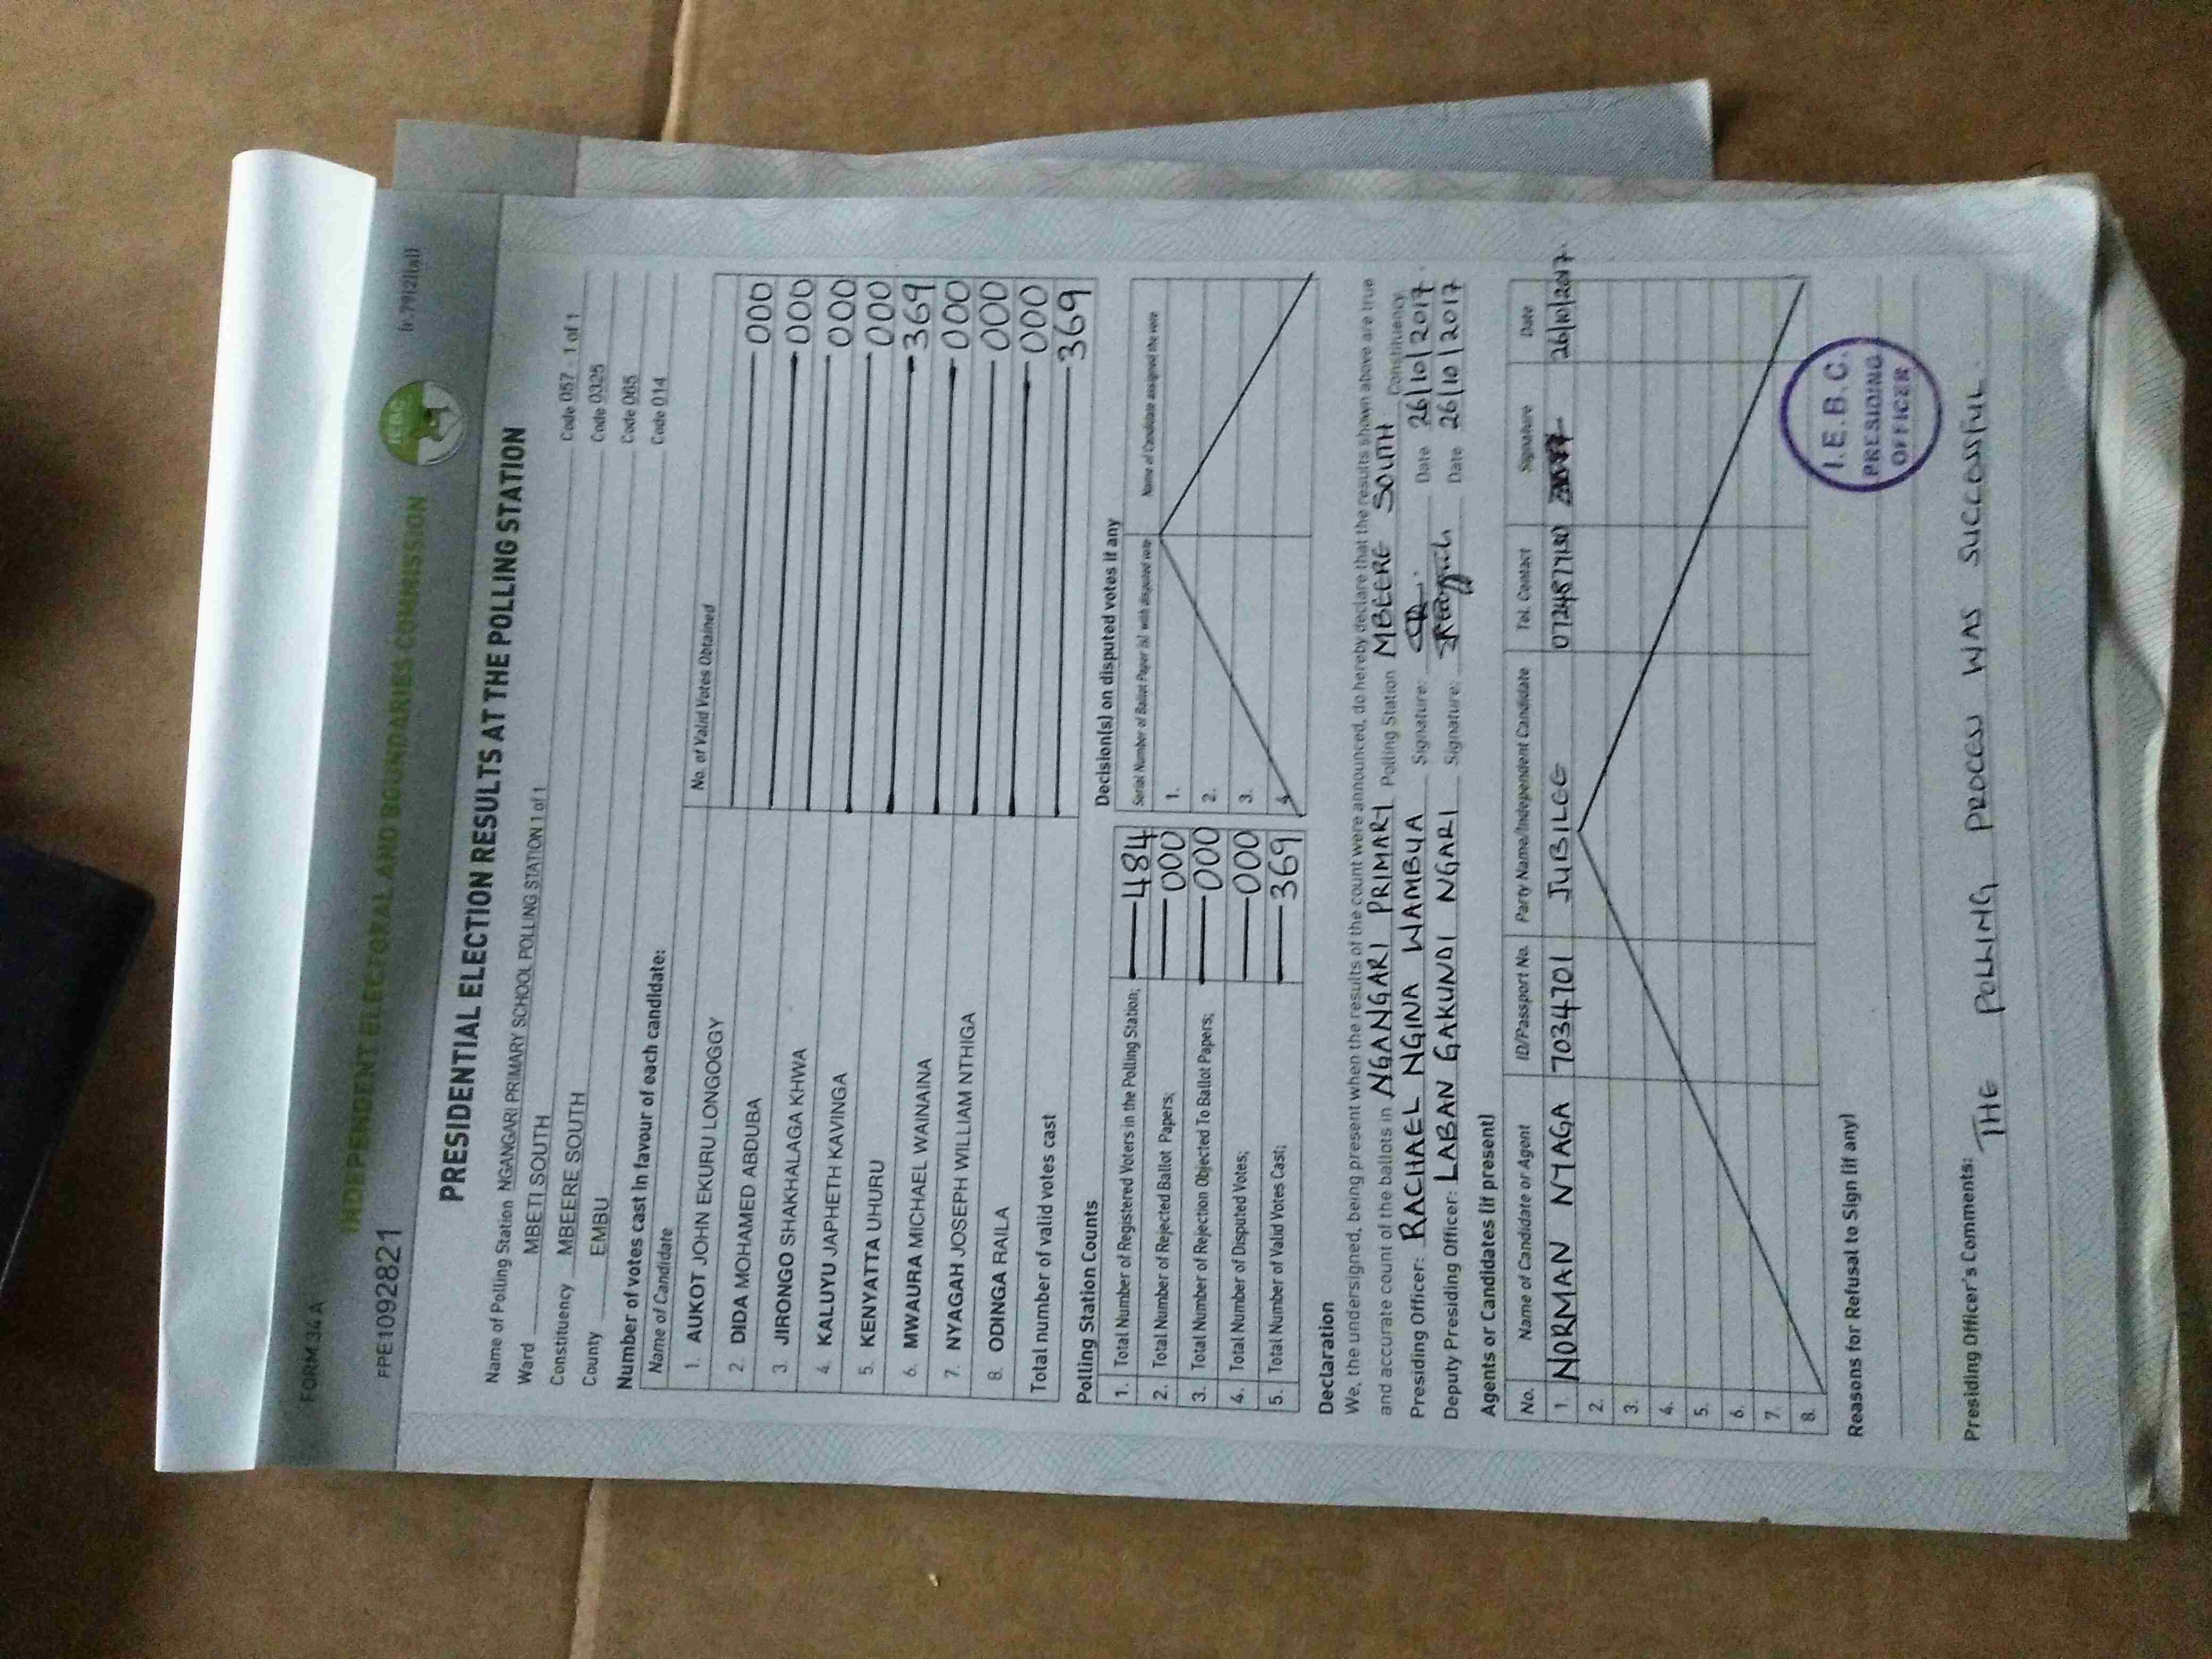 FORM 34 A
(r.79(2)(a))
INDEPENDENT ELECTORAL AND BOUNDARIES COMMISSION
IEBC
FPE1092821
PRESIDENTIAL ELECTION RESULTS AT THE POLLING STATION
Name of Polling Station NGANGARI PRIMARY SCHOOL POLLING STATION 1 of 1 Code 057 - 1 of 1
Ward MBETI SOUTH Code 0325
Constituency MBEERE SOUTH Code 065
County EMBU Code 014
Number of votes cast in favour of each candidate:
Name of Candidate No. of Valid Votes Obtained
1. AUKOT JOHN EKURU LONGOGGY 000
2. DIDA MOHAMED ABDUBA 000
3. JIRONGO SHAKHALAGA KHWA 000
4. KALUYU JAPHETH KAVINGA 000
5. KENYATTA UHURU 369
6. MWAURA MICHAEL WAINAINA 000
7. NYAGAH JOSEPH WILLIAM NTHIGA 000
8. ODINGA RAILA 000
Total number of valid votes cast 369
Polling Station Counts
1. Total Number of Registered Voters in the Polling Station; 484
2. Total Number of Rejected Ballot Papers; 000
3. Total Number of Rejection Objected To Ballot Papers; 000
4. Total Number of Disputed Votes; 000
5. Total Number of Valid Votes Cast; 369
Decision(s) on disputed votes if any
Serial Number of Ballot Paper (s) with disputed vote Name of Candidate assigned the vote
1.
2.
3.
4.
Declaration
We, the undersigned, being present when the results of the count were announced, do hereby declare that the results shown above are true
and accurate count of the ballots in NGANGARI PRIMARY Polling Station MBEERE SOUTH Constituency
Presiding Officer: RACHAEL NGINA WAMBUA Signature: Date 26/10/2017
Deputy Presiding Officer: LABAN GAKUNDI NGARI Signature: Date 26/10/2017
Agents or Candidates (if present)
No. Name of Candidate or Agent ID/Passport No. Party Name/Independent Candidate Tel. Contact Signature Date
1. NORMAN NYAGA 7034701 JUBILEE 26/10/2017
2.
3.
4.
5.
6.
7.
8.
I.E.B.C.
PRESIDING
OFFICER
Reasons for Refusal to Sign (if any)
Presiding Officer's Comments:
THE POLLING PROCESS WAS SUCCESSFUL.